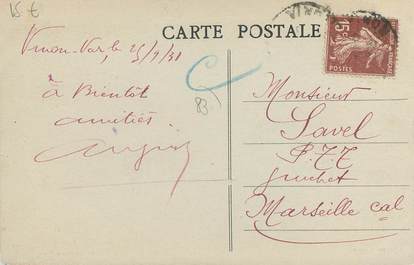 15 €
CARTE POSTALE
Vinon-Var, le 25/9/31
à Bientôt
amitiés
83
15c
POSTES
Monsieur
Savel
P.T.T
guichet
Marseille cal